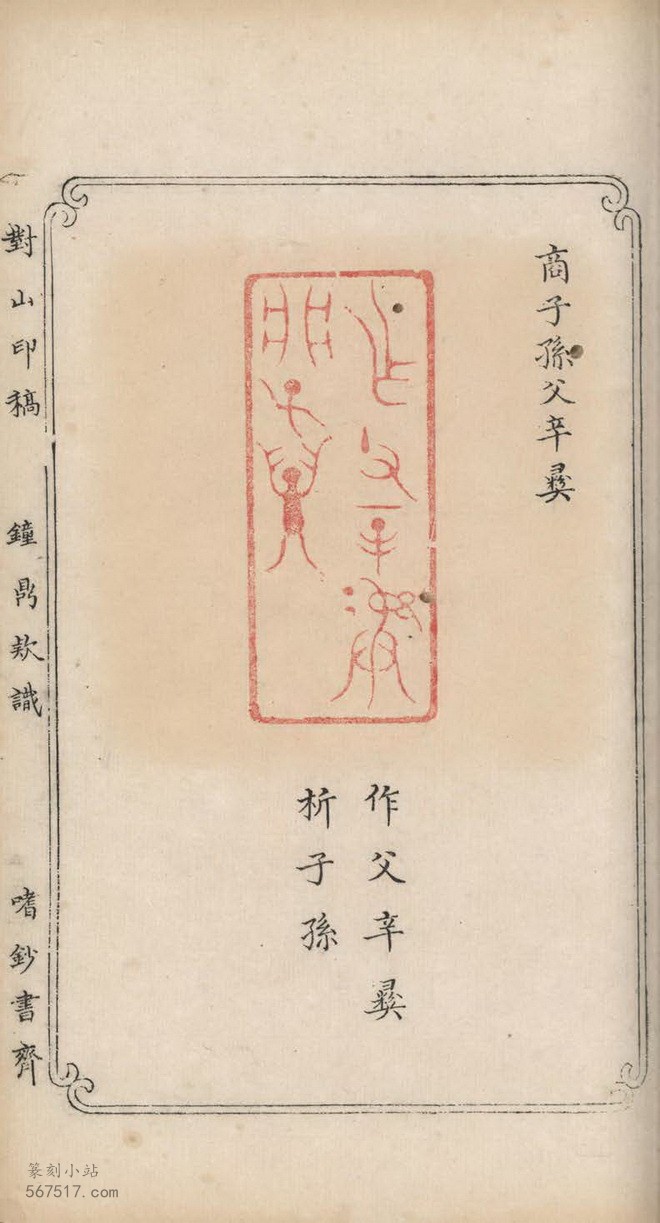 商子孫父辛彝
作父辛彝
析子孫
對山印稿 鐘鼎欵識 嗜鈔書齊
篆刻小站
567517.com